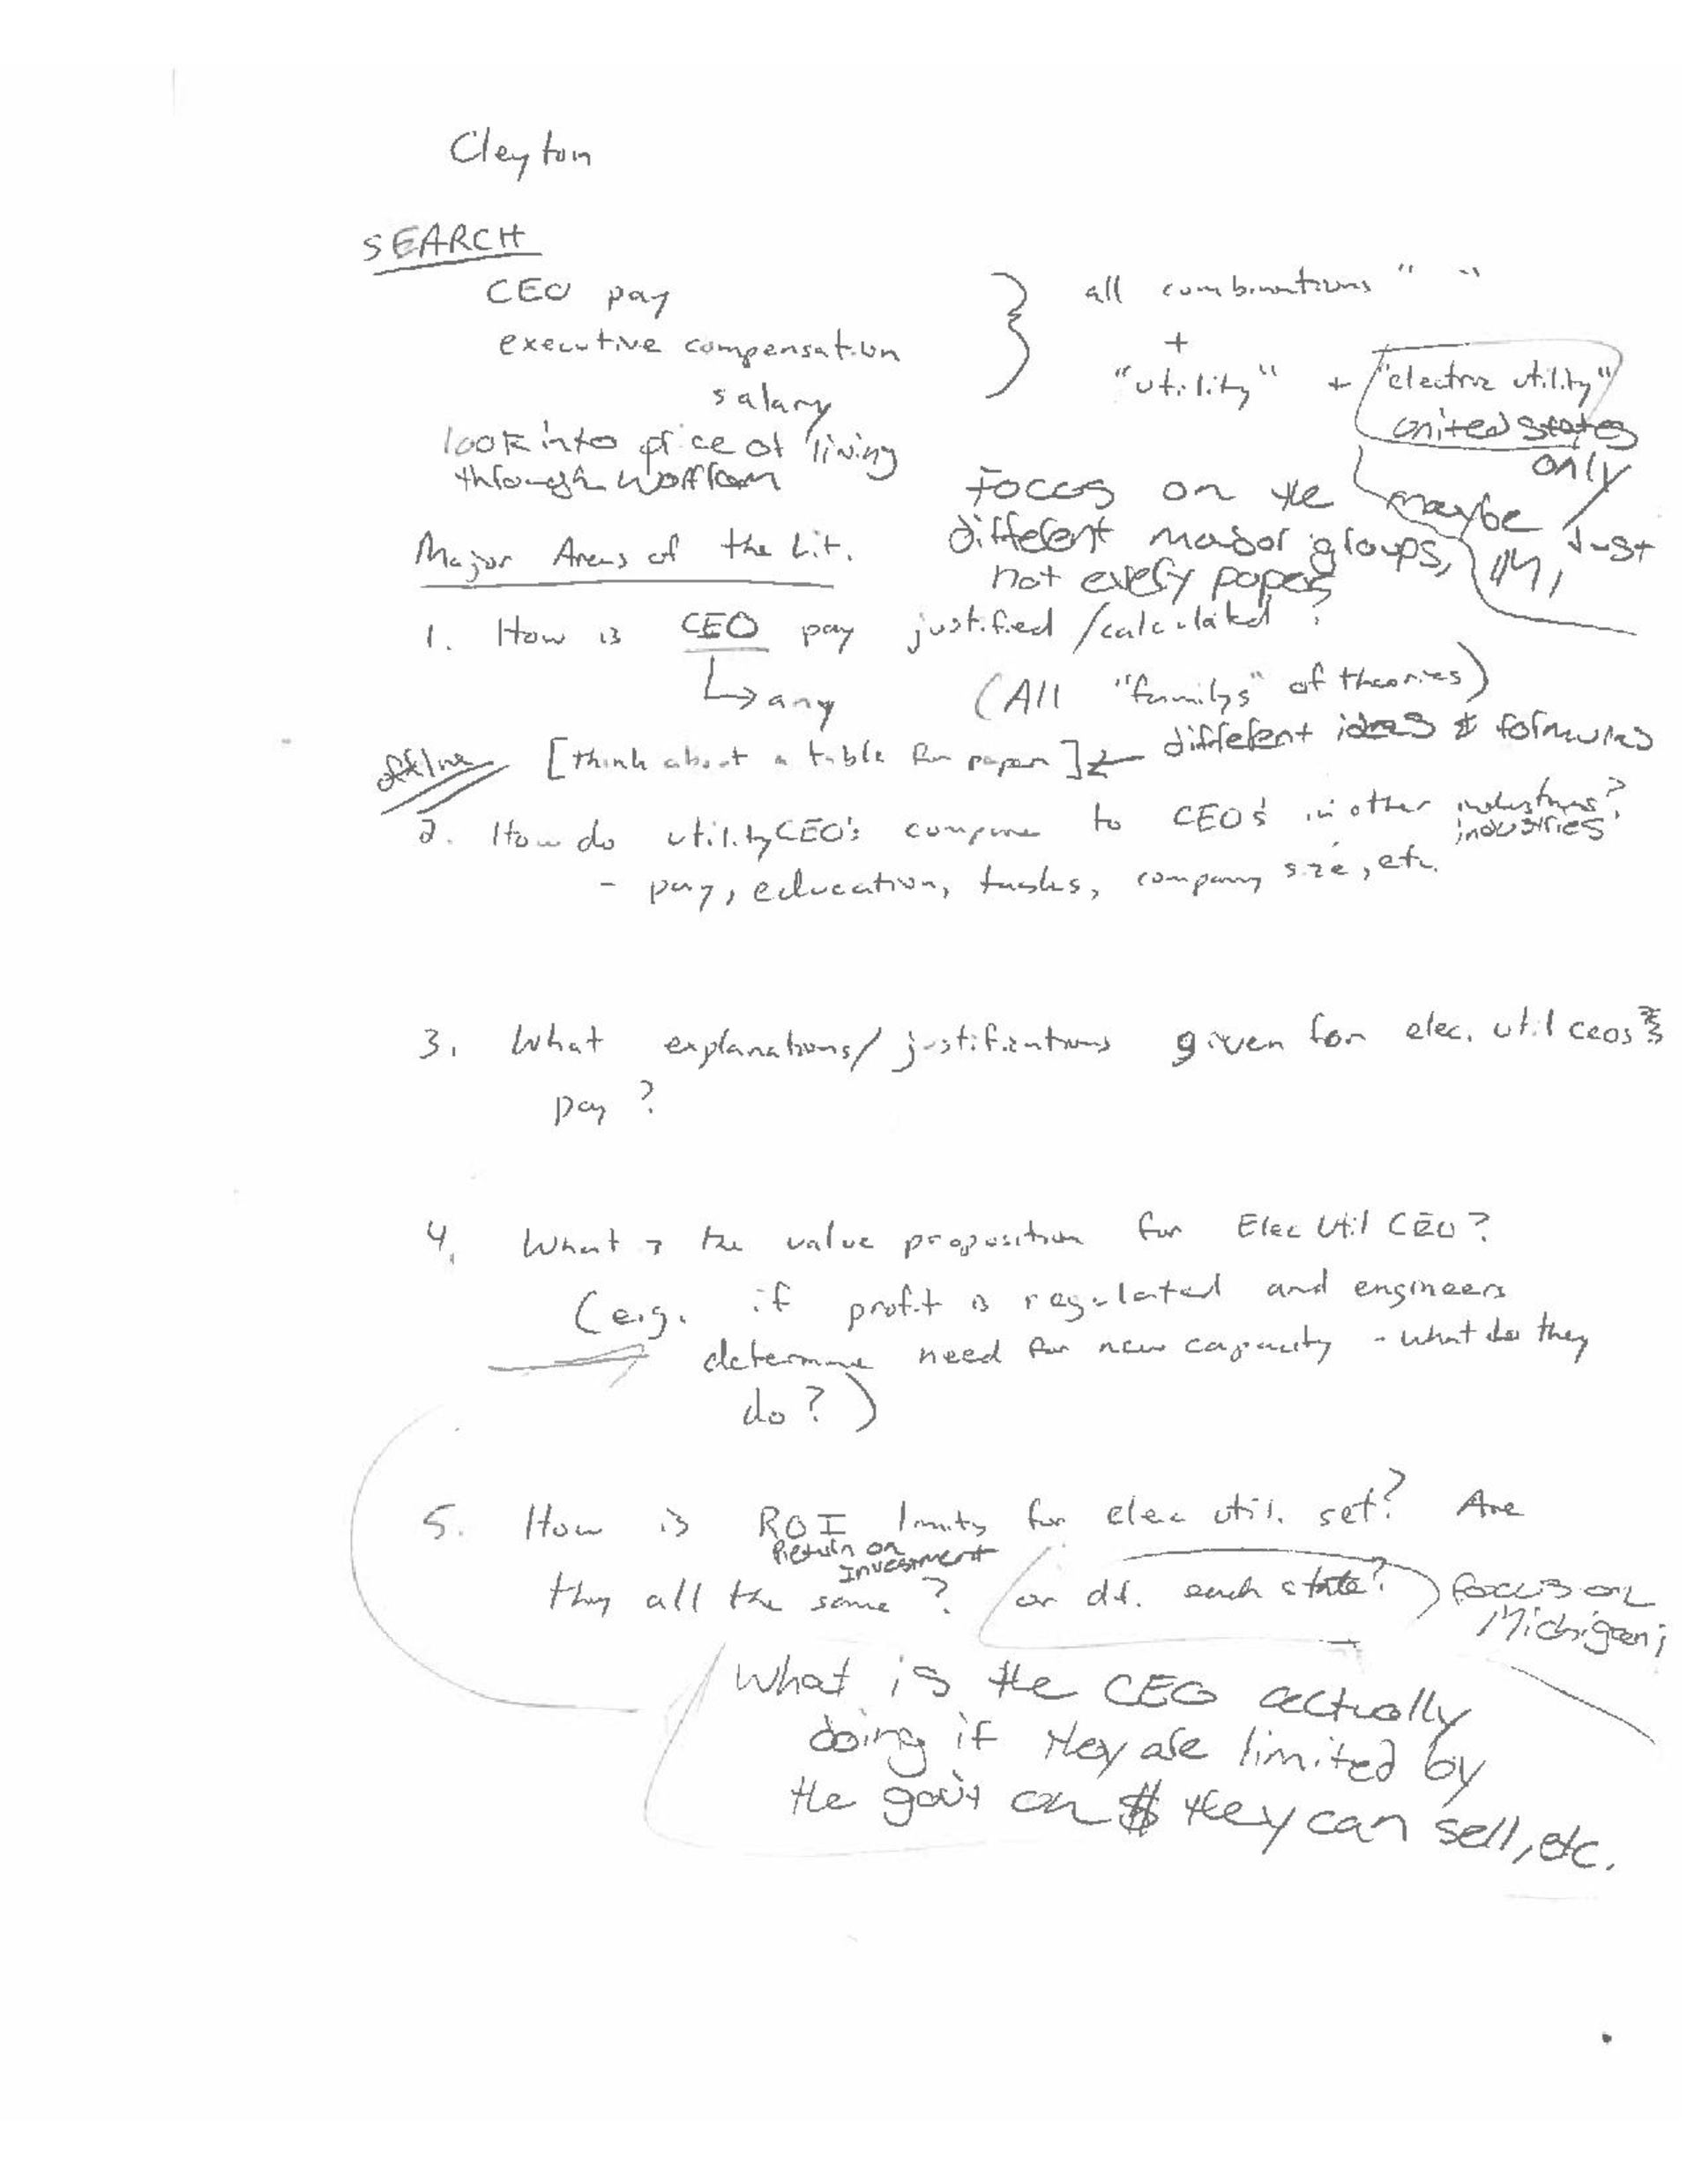 Cleyton
SEARCH
CEO pay
executive compensation
salary
} all combinations " "
+
"utility" + "electric utility"
united states
only
look into price of living
through Wolfram
maybe Just
MI
Focus on the
different major groups,
not every paper
Major Areas of the Lit.
1. How is CEO pay justified/calculated?
↳ any (All "familys" of theories)
offline [think about a table for paper] ← different ideas & formulas
2. How do utility CEO's compare to CEO's in other industries?
industries
- pay, education, tasks, company size, etc.
3. What explanations/justifications given for elec. util ceos
pay?
4. What is the value proposition for Elec Util CEO?
(e.g. if profit is regulated and engineers
determine need for new capacity - what do they
do?)
5. How is ROI limits for elec util. set? Are
Return on
Investment
they all the same? (or df. each state?) focus on
Michigan;
What is the CEO actually
doing if they are limited by
the gov't on $ they can sell, etc.